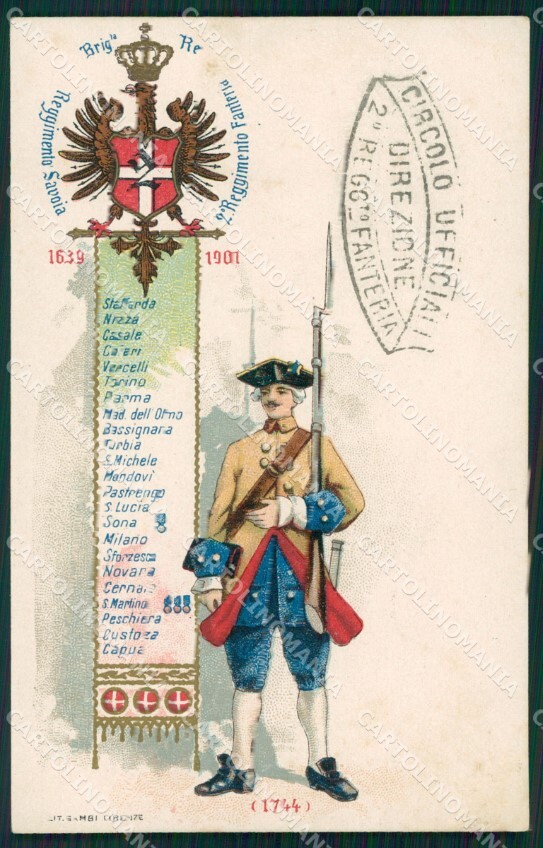 Brig.ta Re
Reggimento Savoia
2° Reggimento Fanteria
1639 1901
Staffarda
Nizza
Casale
Vercelli
Torino
Parma
Mad. dell'Olmo
Bassignana
Turbia
S. Michele
Mondovi
Pastrengo
S. Lucia
Sona
Milano
Sforzesca
Novara
Cernaia
S. Martino
Peschiera
Custoza
Capua
(1744)
LIT. GAMBI FIRENZE
CIRCOLO UFFICIALI
DIREZIONE
2° REGG.TO FANTERIA
CARTOLINOMANIA